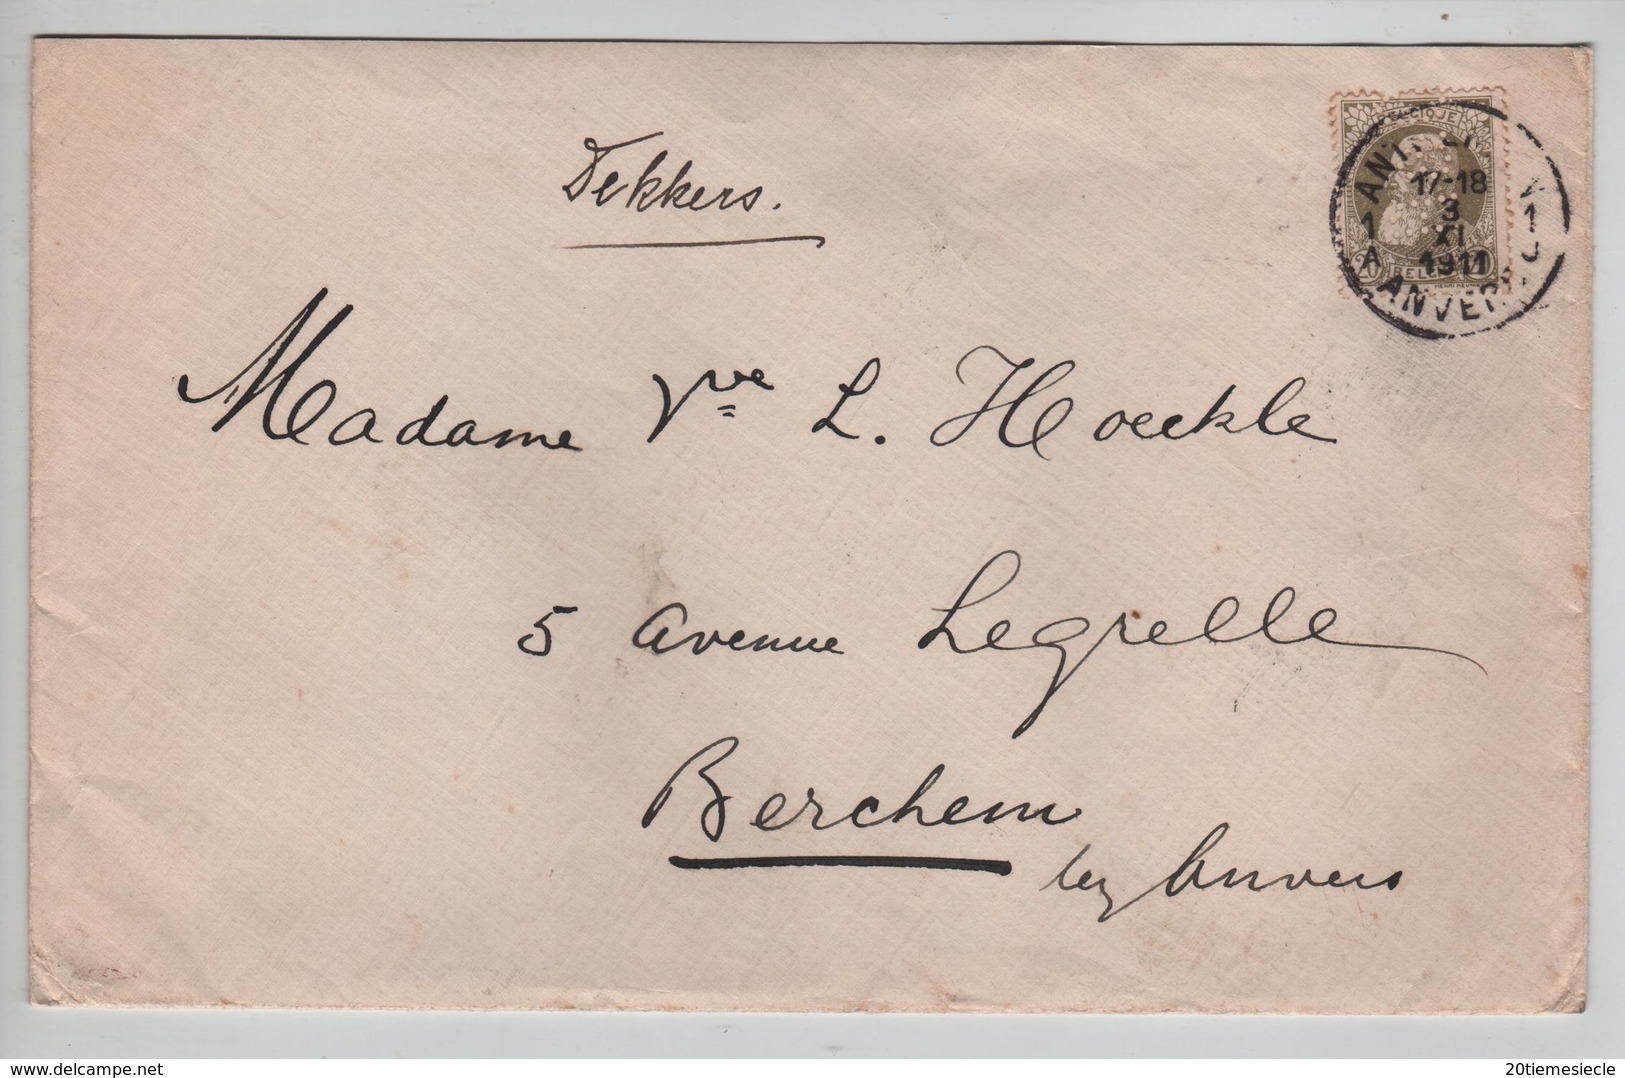 Dekkers.
BELGIQUE
17-18
3
XI
1911
1
A
1
ANVERS
20 BELGIE 20
Madame Vve L. Hoeckle
5 Avenue Legrelle
Berchem
lez Anvers
delcampe.net
20tiemesiecle